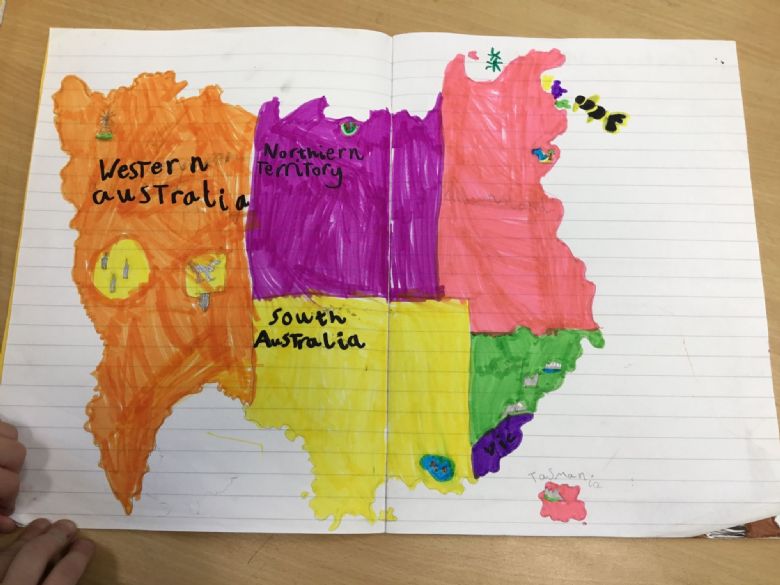 Western
australia
Northiern
Territory
South
Australia
Vic
Tasmania